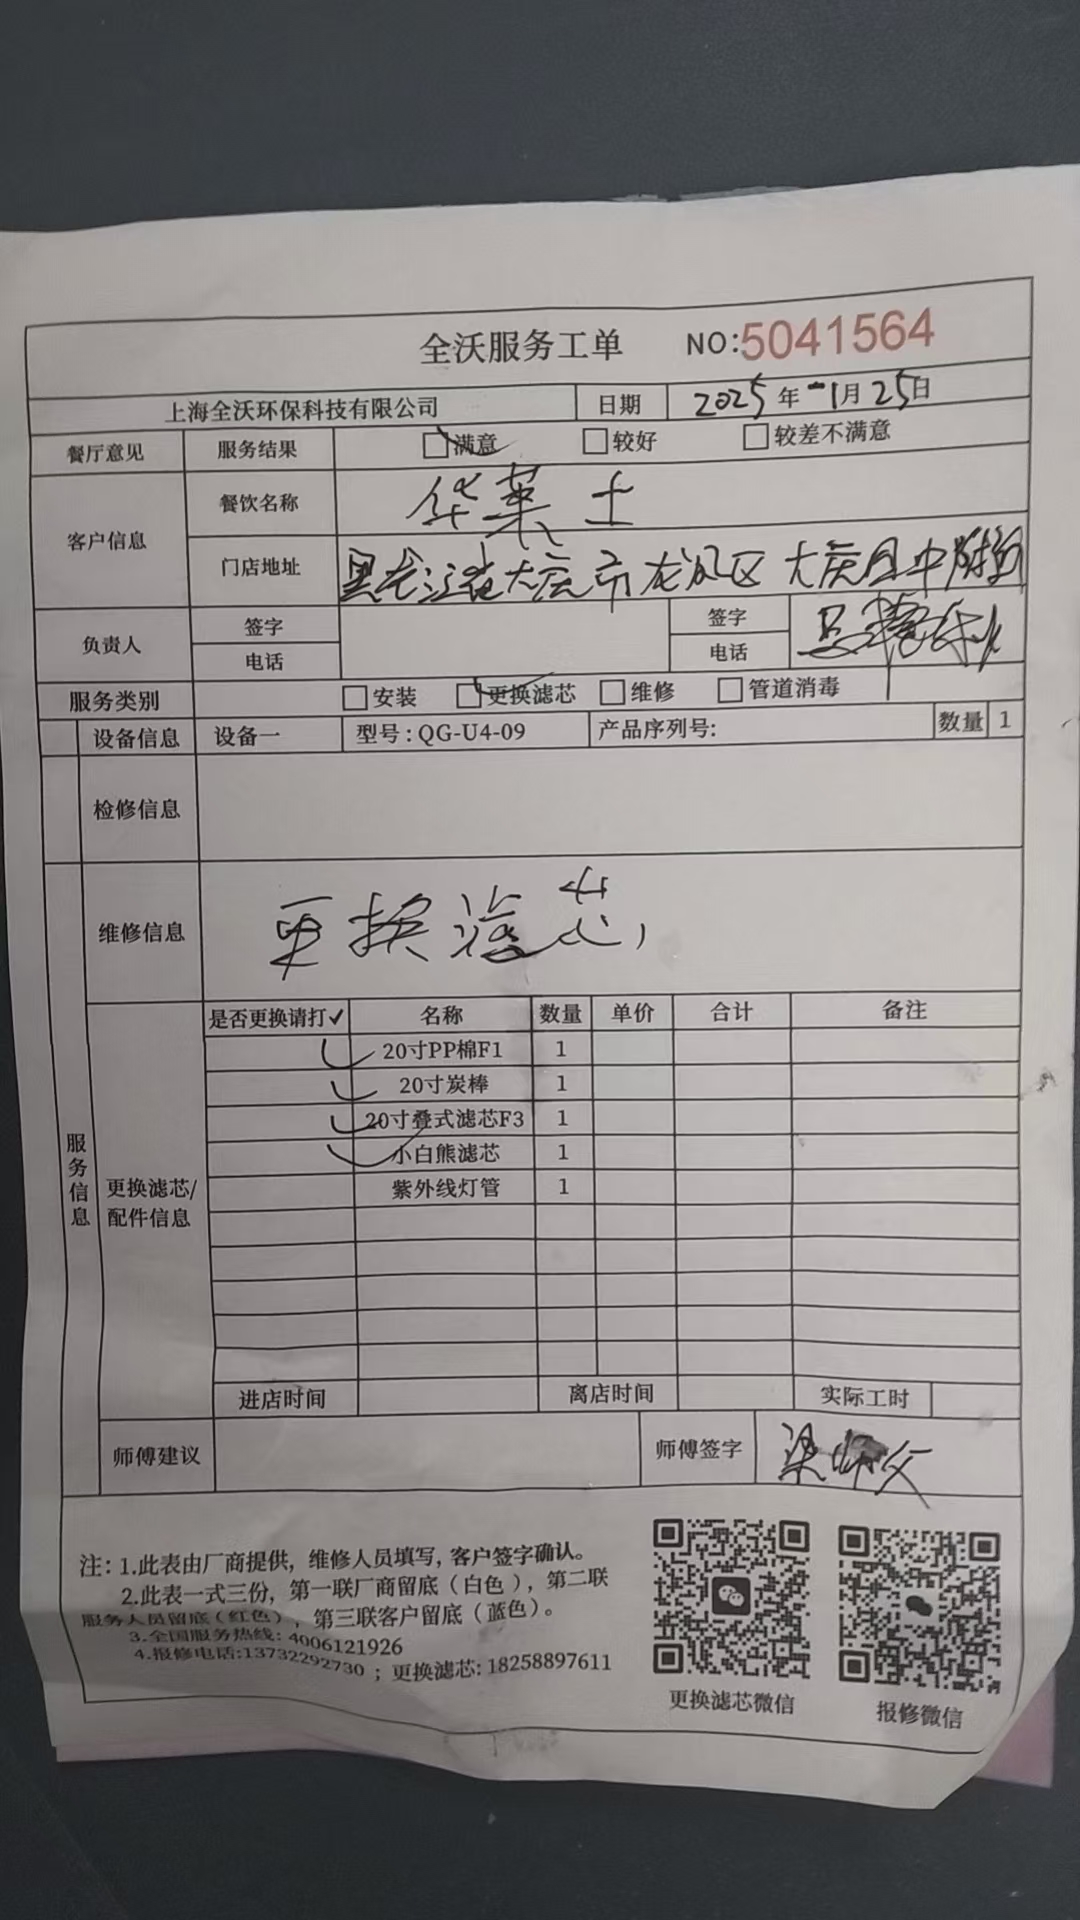 全沃服务工单 NO:5041564
上海全沃环保科技有限公司 日期 2025年 1月25日
餐厅意见 服务结果 满意 较好 较差不满意
客户信息 餐饮名称 华莱士
门店地址 黑龙江省大庆市龙凤区大庆
负责人 签字 签字
电话 电话
服务类别 安装 更换滤芯 维修 管道消毒
设备信息 设备一 型号:QG-U4-09 产品序列号: 数量 1
检修信息
维修信息 更换滤芯
服务信息
更换滤芯/
配件信息
是否更换请打✓ 名称 数量 单价 合计 备注
✓ 20寸PP棉F1 1
✓ 20寸炭棒 1
✓ 20寸叠式滤芯F3 1
✓ 小白熊滤芯 1
紫外线灯管 1
进店时间 离店时间 实际工时
师傅建议 师傅签字 梁师父
注:1.此表由厂商提供,维修人员填写,客户签字确认。
2.此表一式三份,第一联厂商留底(白色),第二联
服务人员留底(红色),第三联客户留底(蓝色)。
3.全国服务热线:4006121926
4.报修电话:13732292730;更换滤芯:18258897611
更换滤芯微信 报修微信